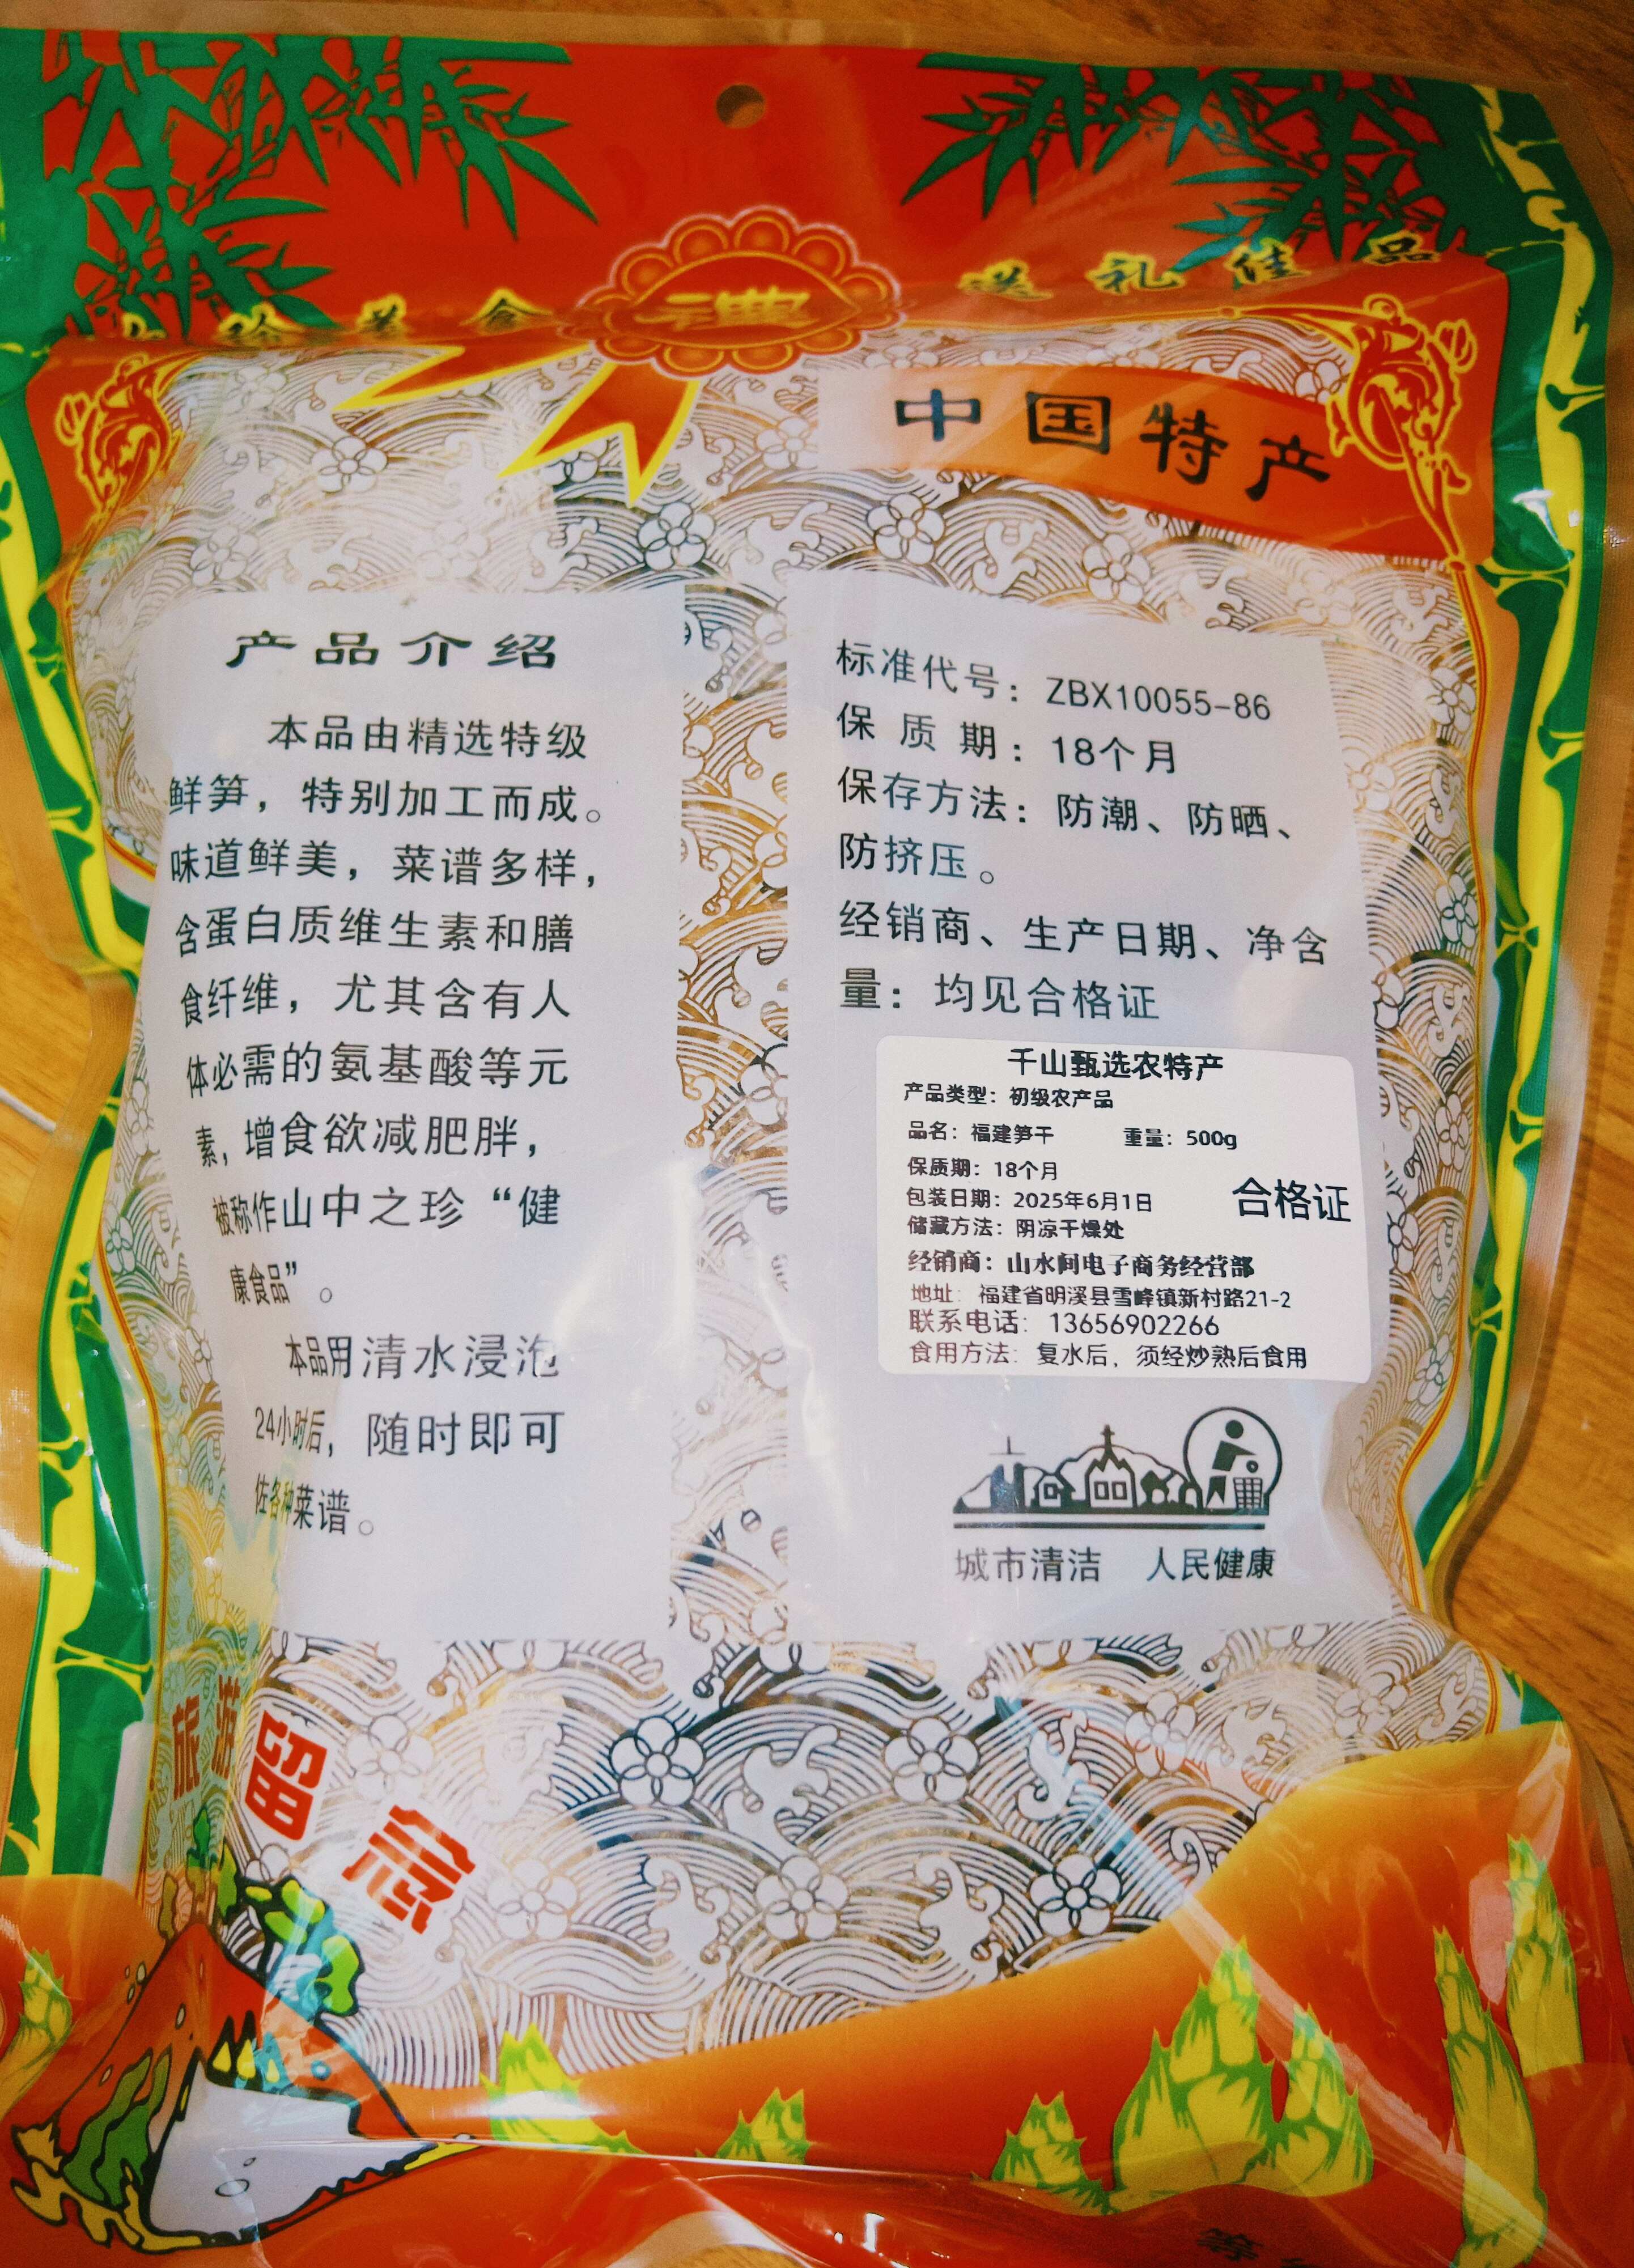 珍美食
送礼佳品
中国特产
产品介绍
本品由精选特级
鲜笋，特别加工而成。
味道鲜美，菜谱多样，
含蛋白质维生素和膳
食纤维，尤其含有人
体必需的氨基酸等元
素，增食欲减肥胖，
被称作山中之珍“健
康食品”。
本品用清水浸泡
24小时后，随时即可
佐各种菜谱。
标准代号：ZBX10055-86
保质期：18个月
保存方法：防潮、防晒、
防挤压。
经销商、生产日期、净含
量：均见合格证
千山甄选农特产
产品类型：初级农产品
品名：福建笋干 重量：500g
保质期：18个月
包装日期：2025年6月1日
合格证
储藏方法：阴凉干燥处
经销商：山水间电子商务经营部
地址：福建省明溪县雪峰镇新村路21-2
联系电话：13656902266
食用方法：复水后，须经炒熟后食用
城市清洁 人民健康
旅游留念